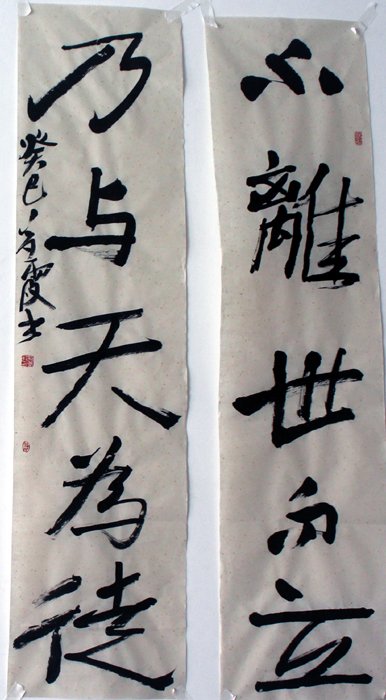 不離世而立
乃与天為徒
癸巳